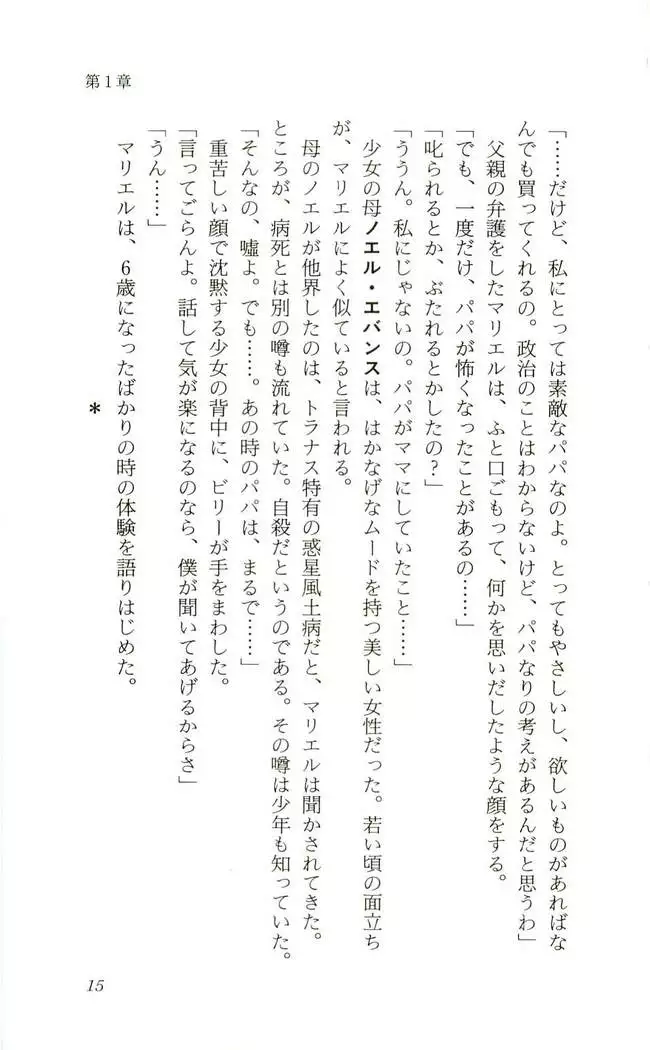 第1章
「……だけど、私にとっては素敵なパパなのよ。とってもやさしいし、欲しいものがあればな
んでも買ってくれるの。政治のことはわからないけど、パパなりの考えがあるんだと思うわ」
父親の弁護をしたマリエルは、ふと口ごもって、何かを思いだしたような顔をする。
「でも、一度だけ、パパが怖くなったことがあるの……」
「叱られるとか、ぶたれるとかしたの？」
「ううん。私にじゃないの。パパがママにしていたこと……」
少女の母ノエル・エバンスは、はかなげなムードを持つ美しい女性だった。若い頃の面立ち
が、マリエルによく似ていると言われる。
母のノエルが他界したのは、トラナス特有の惑星風土病だと、マリエルは聞かされてきた。
ところが、病死とは別の噂も流れていた。自殺だというのである。その噂は少年も知っていた。
「そんなの、嘘よ。でも……。あの時のパパは、まるで……」
重苦しい顔で沈黙する少女の背中に、ビリーが手をまわした。
「言ってごらんよ。話して気が楽になるのなら、僕が聞いてあげるからさ」
「うん……」
マリエルは、6歳になったばかりの時の体験を語りはじめた。
＊
15